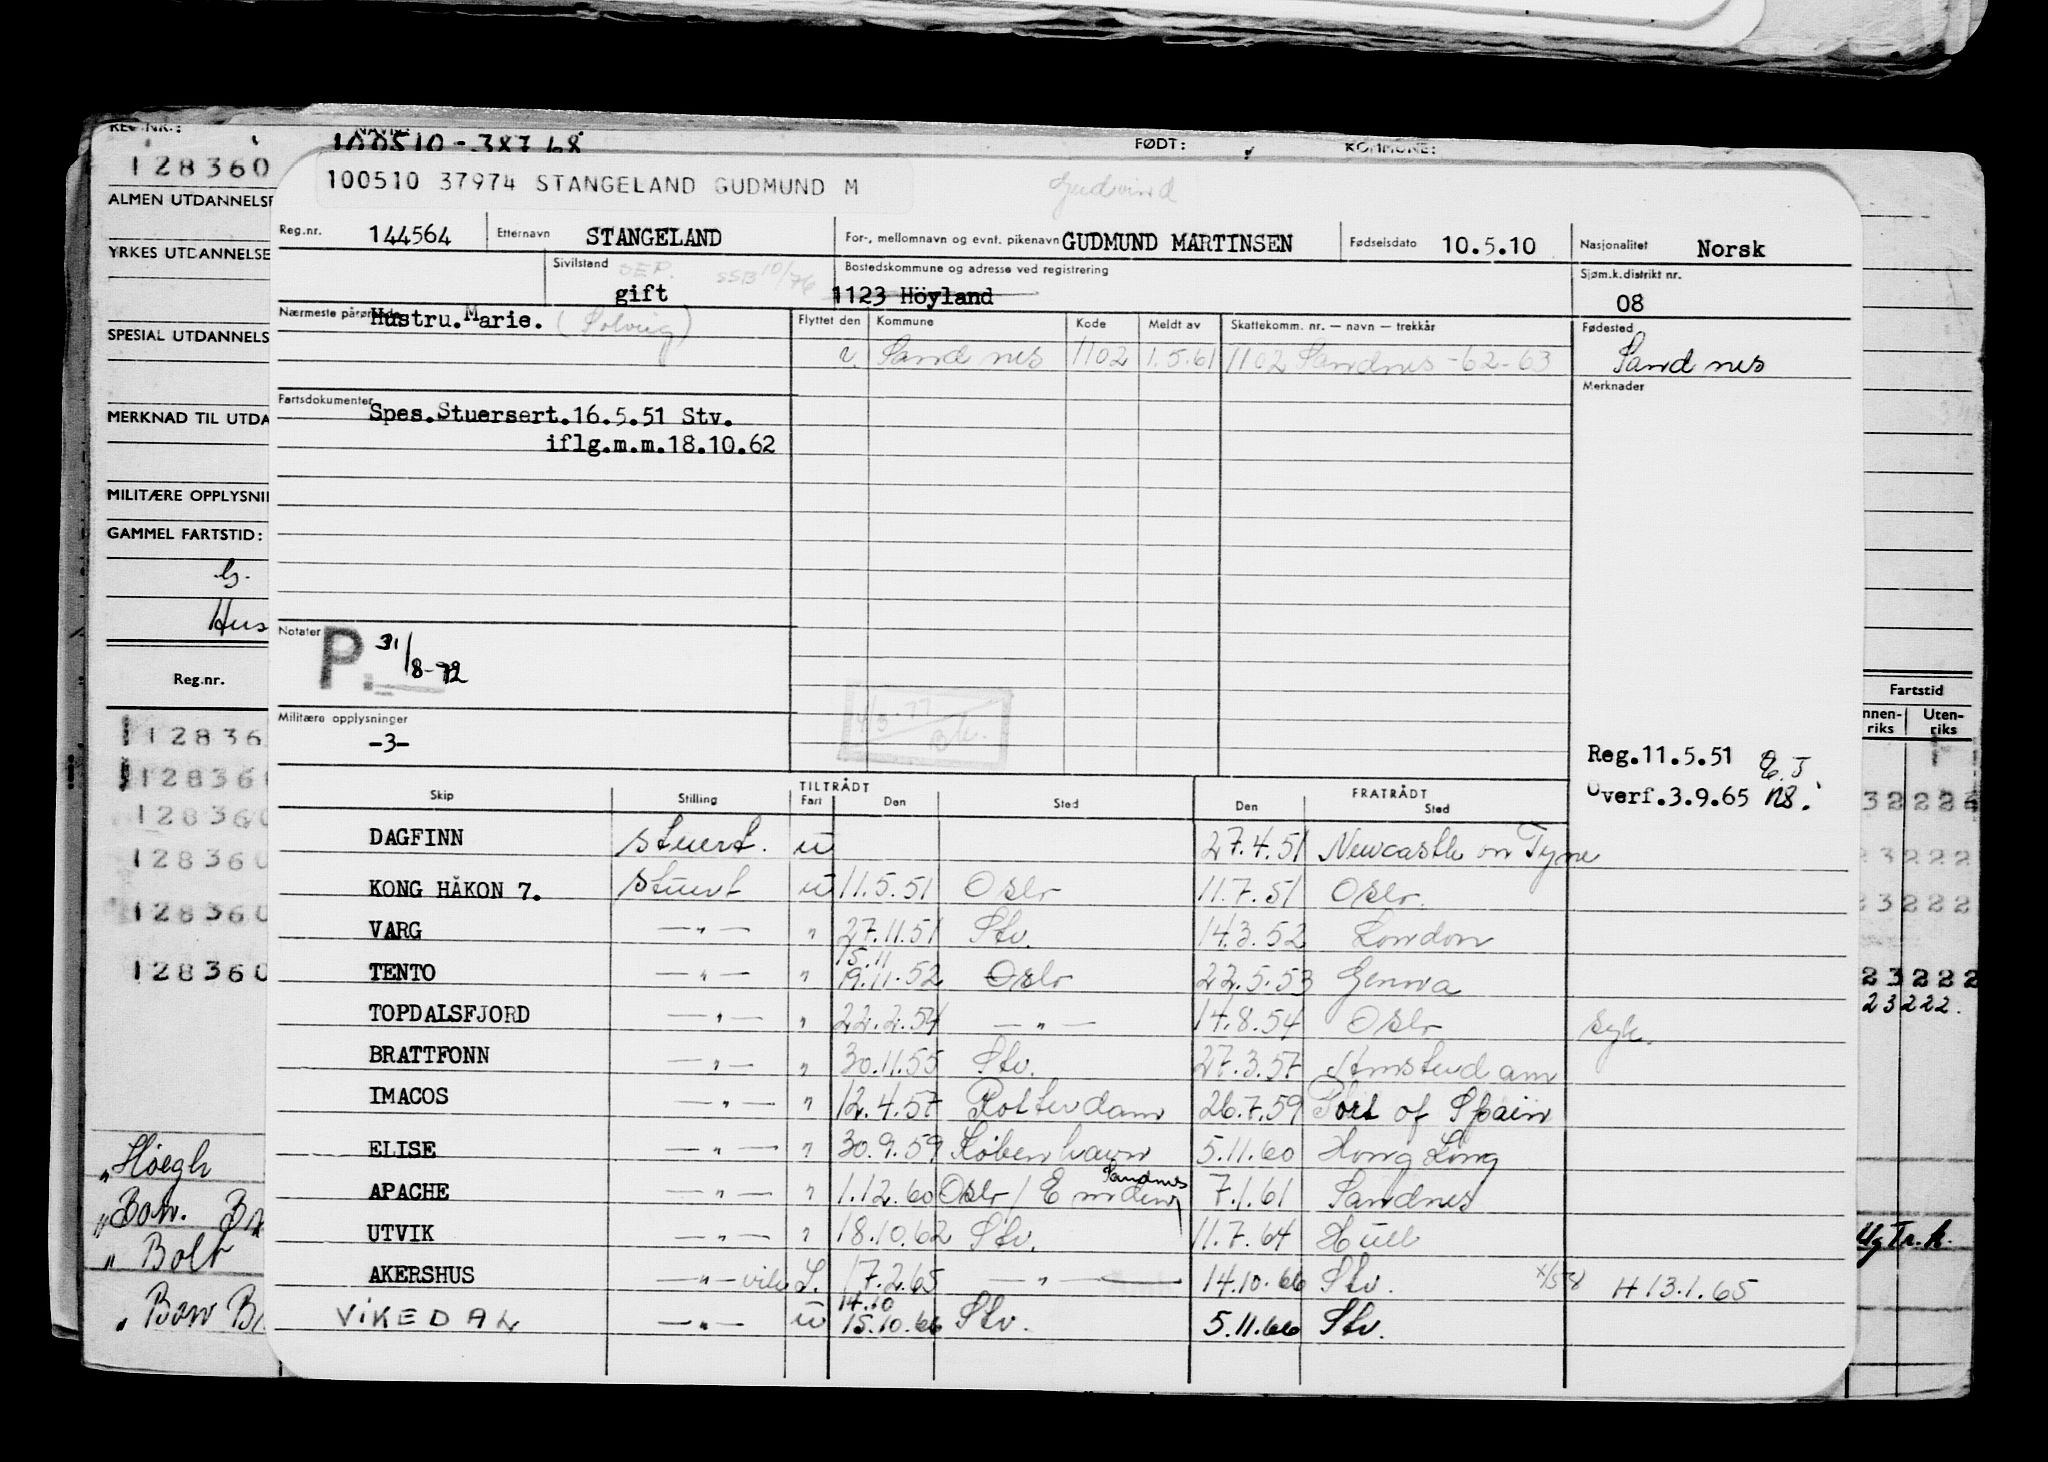 REG.NR.: NAVN: FØDT: KOMMUNE:
128360 100510-38768
100510 37974 STANGELAND GUDMUND M Gudvind
ALMEN UTDANNELSE
Reg.nr. 144564 Etternavn STANGELAND For-, mellomnavn og evnt. pikenavn GUDMUND MARTINSEN Fødselsdato 10.5.10 Nasjonalitet Norsk
YRKES UTDANNELSE
Sivilstand SEP. gift SSB 10/76 Bostedskommune og adresse ved registrering 1123 Höyland Sjøm.k.distrikt nr. 08
Nærmeste pårørende Hustru.Marie. (Solveig) Flyttet den Kommune Kode Meldt av Skattekomm. nr. — navn — trekkår Fødested
SPESIAL UTDANNELS
v. Sandnes 1102 1.5.61 1102 Sandnes -62-63 Sandnes
Merknader
Fartsdokumenter Spes.Stuersert.16.5.51 Stv.
MERKNAD TIL UTDA
iflg.m.m.18.10.62
MILITÆRE OPPLYSNI
GAMMEL FARTSTID:
Hus
Notater P. 31/8-72
Reg.nr. Fartstid
nnen-riks Uten-riks
Militære opplysninger
-3-
Reg.11.5.51
Overf.3.9.65
Skip Stilling TILTRÅDT Fart Den Sted FRATRÅDT Den Sted
DAGFINN stuert. u 27.4.51 Newcastle on Tyne
KONG HÅKON 7. stuert u 11.5.51 Oslo 11.7.51 Oslo.
VARG —"— " 27.11.51 Stv. 14.3.52 London
15.11
TENTO —"— " 19.11.52 Oslo 22.5.53 Genova
TOPDALSFJORD —"— " 22.2.54 —"— 14.8.54 Oslo syk.
BRATTFONN —"— " 30.11.55 Stv. 27.3.57 Amsterdam
IMACOS —"— " 12.4.57 Rotterdam 26.7.59 Port of Spain
ELISE —"— " 30.9.59 København 5.11.60 Hong Kong
Sandnes
APACHE —"— " 1.12.60 Oslo / Emden 7.1.61 Sandnes
UTVIK —"— " 18.10.62 Stv. 11.7.64 Hull
AKERSHUS —"— vik L. 17.2.65 —"— 14.10.66 Stv. H 13.1.65
14.10
VIKEDAL —"— u 15.10.66 Stv. 5.11.66 Stv.
128360
128360
128360
128360
128360
23222
23222.
" Höegh
" Bow. Br
" Bolt
" Bow Br